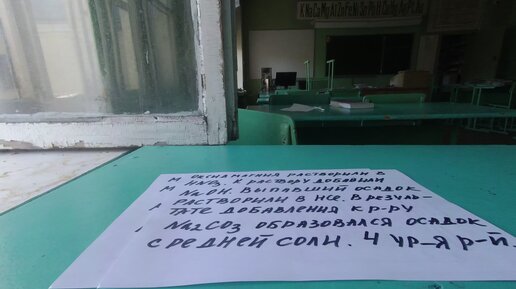 K Na Ca Mg Al Zn Fe Ni Sn Pb H Cu Hg Ag Pt Au
М ОКСИД МАГНИЯ РАСТВОРИЛИ В
HNO3. К РАСТВОРУ ДОБАВИЛИ
М NaOH. ВЫПАВШИЙ ОСАДОК
РАСТВОРИЛИ В HCl. В РЕЗУЛЬ-
ТАТЕ ДОБАВЛЕНИЯ К Р-РУ
Na2CO3 ОБРАЗОВАЛСЯ ОСАДОК
СРЕДНЕЙ СОЛИ. 4 УР-Я Р-Й.